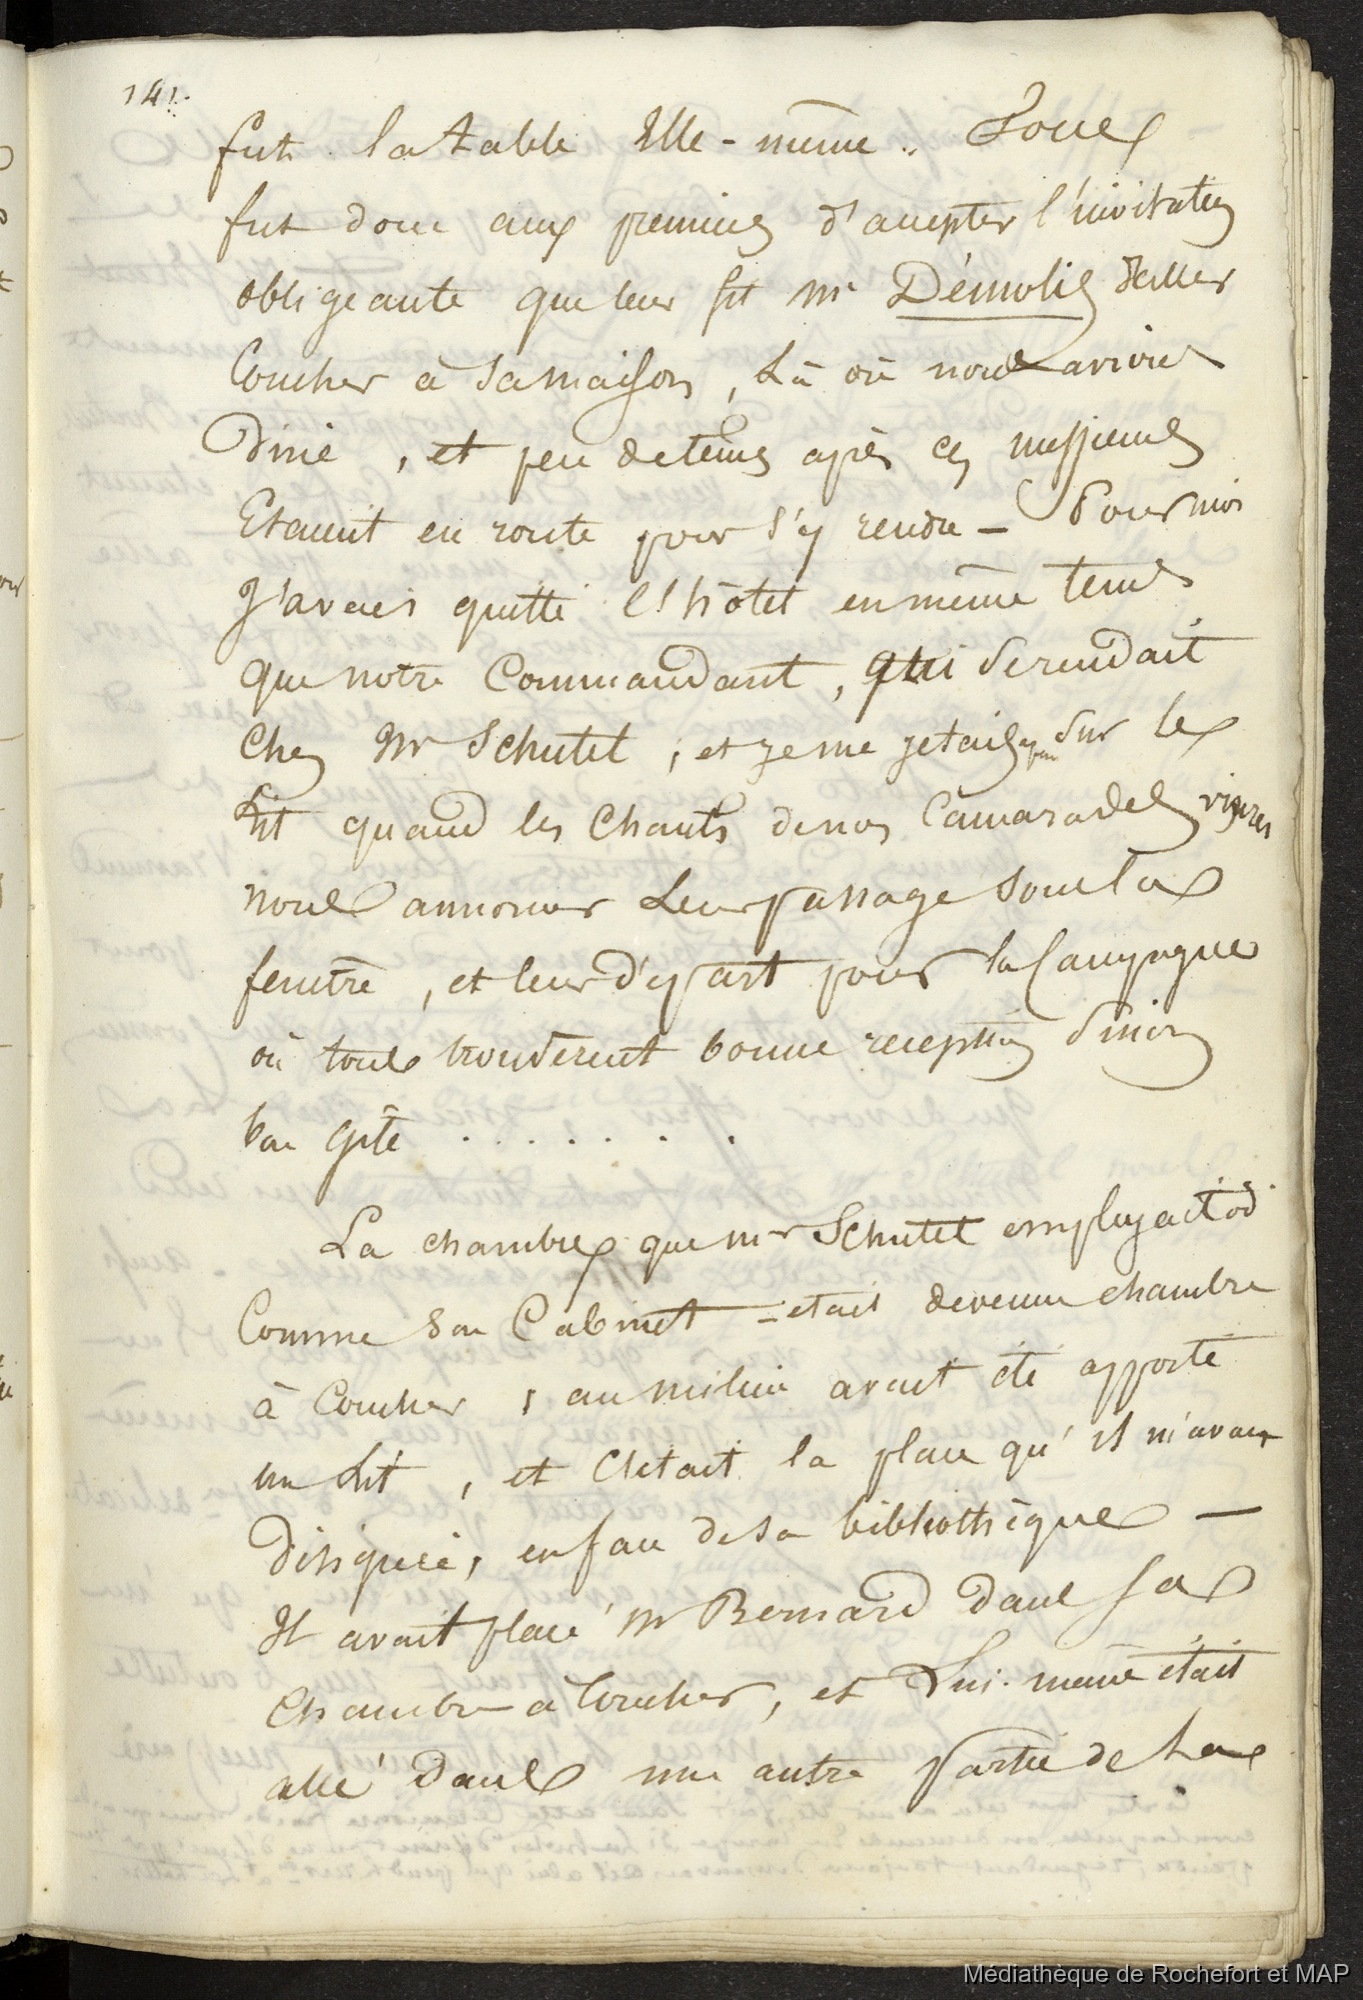 141.
fut la table Elle-même. Force
fut donc aux premiers d'accepter l'invitation
obligeante que leur fit Mr Démolis d'aller
Coucher à sa maison, Là où nous avions
Diné, et peu de tems après ces messieurs
Etaient en route pour s'y rendre - Pour moi
J'avais quitté l'hôtel en même tems
que notre Commandant, qui se rendait
Chez Mr Schutel, et je me jetais sur le
Lit quand les Chants de nos Camarades
nous annoncer Leur passage sous la
fenêtre, et leur départ pour la Campagne
où tous trouverent bonne reception sinon
bon gîte . . . . . . .
La chambre que mr Schutel employait
Comme son Cabinet - etait devenue chambre
à Coucher, au milieu avait été apporté
un Lit, et C'etait la place qu'il m'avait
Désignée, en face de sa bibliothèque -
Il avait placé Mr Bernard dans sa
Chambre à Coucher, et Lui-même était
allé dans une autre partie de La
Médiathèque de Rochefort et MAP